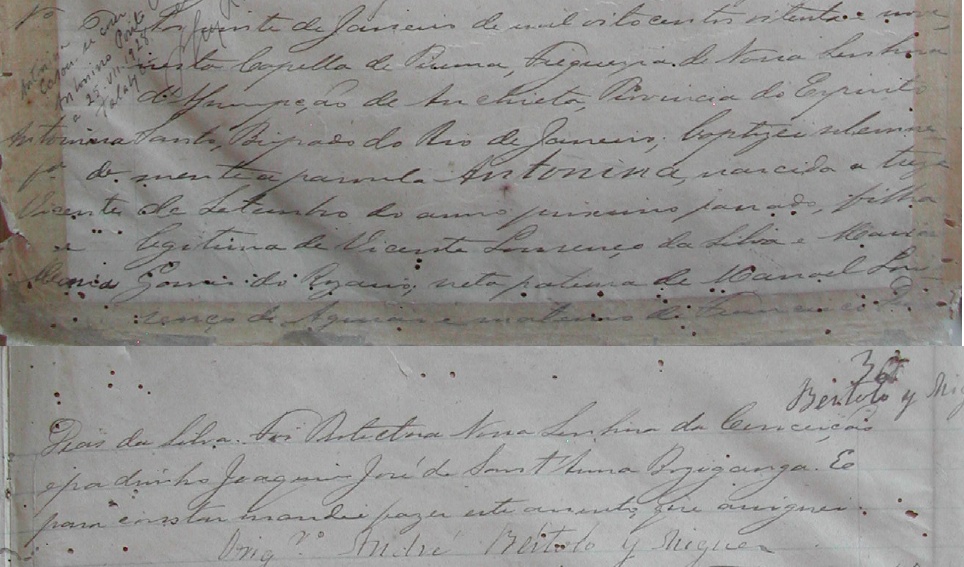 Nº
Antonina
Casou-se com
Antonino
Aos vinte de Janeiro de mil oitocentos oitenta e nove,
nesta Capella de Piuma, Freguezia de Nossa Senhora
d'Assumpção de Anchieta, Provincia do Espirito
Antonina Santo, Bispado do Rio de Janeiro, baptizei solemne
fª de mente a parvula Antonina, nascida a treze
Vicente de Setembro do anno proximo passado, filha
e legitima de Vicente Lourenço da Silva e Maria
Maria Gomes do Rozario; neta paterna de Manoel Lou
renço de Aguiar e materna de Francisco
36
Bertolo y Mig
Dias da Silva. Foi Protectora Nossa Senhora da Conceição
e padrinho Joaquim José de Sant'Anna Bogiganga. E
para constar mandei fazer este assento, que assignei.
Vrigº André Bertolo y Miguez